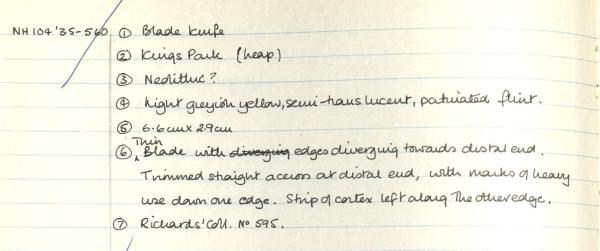 NH 104 '35-560. ① Blade Knife
② Kings Park (heap)
③ Neolithic?
④ Light greyish yellow, semi-translucent, patinated flint.
⑤ 6.6cm x 2.9cm
⑥ Thin Blade with diverging edges diverging towards distal end.
Trimmed straight across at distal end, with marks of heavy
use down one edge. Strip of cortex left along the other edge.
⑦ Richards' Coll. No 595.